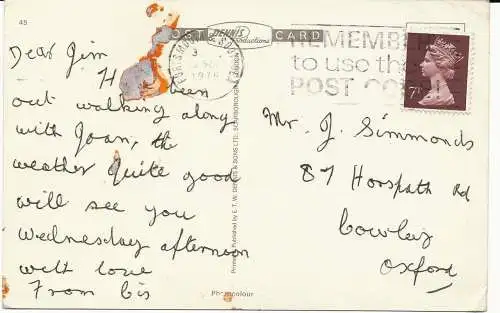 45
POST CARD
DENNIS
Productions
REMEMBER
to use the
POST CO
1976
7P
Dear Jim
H been
out walking along
with Joan, the
weather Quite good
will see you
Wednesday afternoon
with love
From Cis
Mr J. Simmonds
87 Horspath Rd
Cowley
Oxford
Printed & Published by E. T. W. DENNIS & SONS LTD., SCARBOROUGH
Photocolour